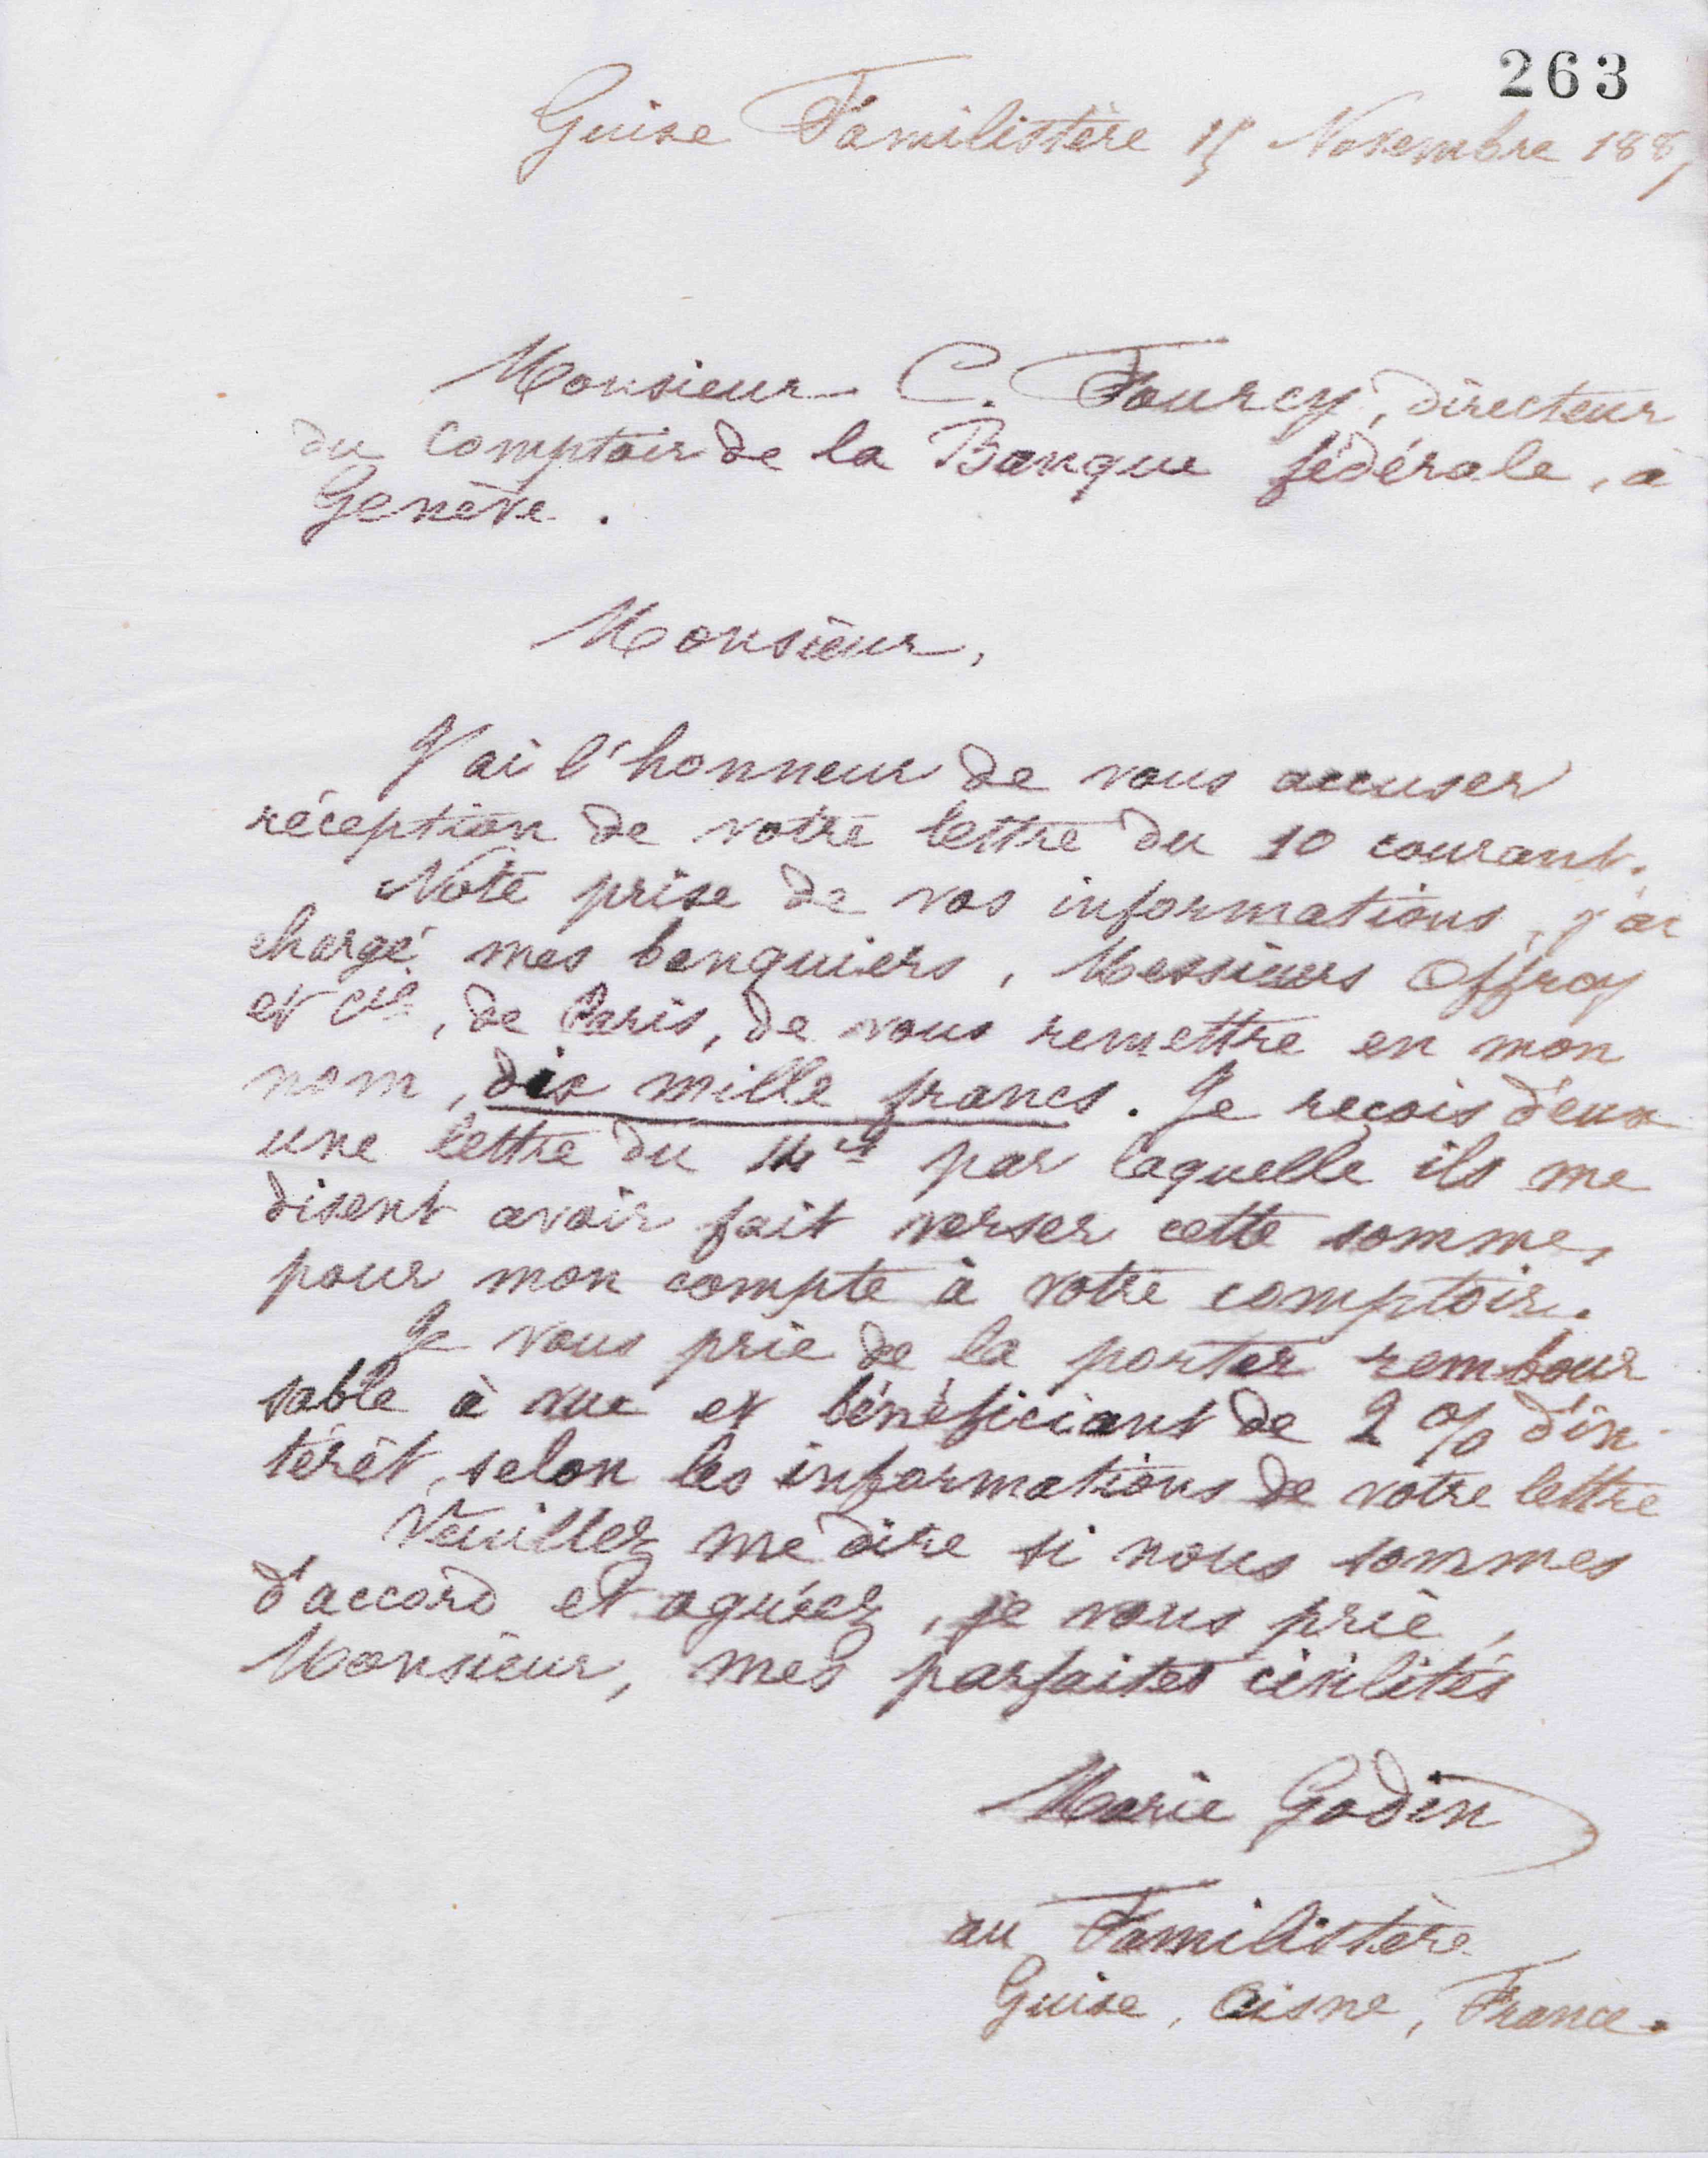 263
Guise Familistère 15 Novembre 188
Monsieur C. Fourcy, directeur
du comptoir de la Banque fédérale, à
Genève.
Monsieur,
J'ai l'honneur de vous accuser
réception de votre lettre du 10 courant.
Note prise de vos informations, j'ai
chargé mes banquiers, Messieurs Offroy
et Cie, de Paris, de vous remettre en mon
nom, dix mille francs. Je reçois d'eux
une lettre du 14 ct par laquelle ils me
disent avoir fait verser cette somme,
pour mon compte à votre comptoir.
Je vous prie de la porter rembour
sable à vue et bénéficiant de 2 % d'in-
térêt, selon les informations de votre lettre
Veuillez me dire si nous sommes
d'accord et agréez, je vous prie,
Monsieur, mes parfaites civilités
Marie Godin
au Familistère
Guise, Aisne, France.